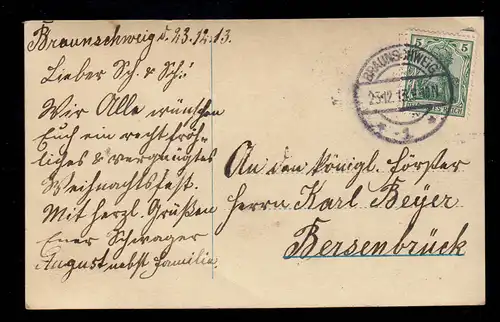 Braunschweig d. 23.12.13.
Lieber Sch. & Sch.!
Wir Alle wünschen
Euch ein recht fröh-
liches & vergnügtes
Weihnachtsfest.
Mit herzl. Grüßen
Euer Schwager
August nebst Familie.
BRAUNSCHWEIG
23.12.13
* 1 *
5 5
REICH
An den königl. Förster
Herrn Karl Beyer
Bersenbrück